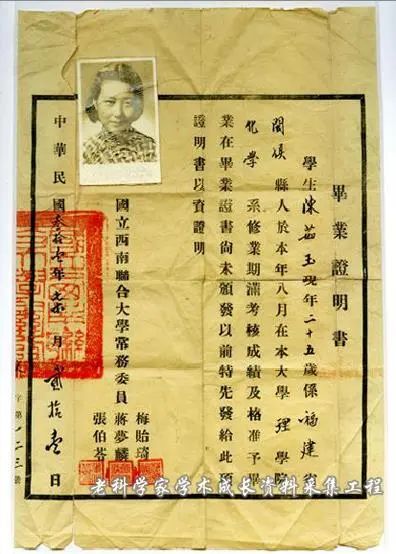 畢業證明書
學生陳茹玉現年二十五歲係福建省
閩侯縣人於本年八月在本大學理學院
化學系修業期滿考核成績及格准予畢
業在畢業證書尚未頒發以前特先發給此項
證明書以資證明
國立西南聯合大學常務委員
梅貽琦
蔣夢麟
張伯苓
中華民國叁拾壹年 月貳拾壹日
字第一二三號
老科学家学术成长资料采集工程